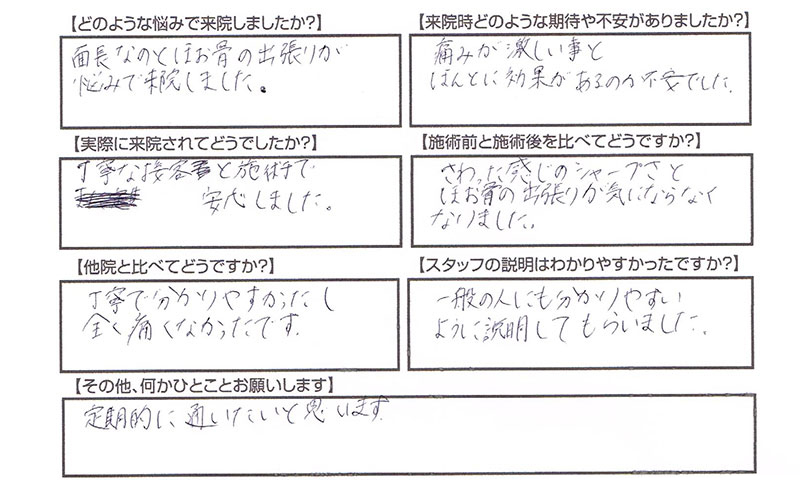 【どのような悩みで来院しましたか?】
面長なのとほお骨の出張りが
悩みで来院しました。
【来院時どのような期待や不安がありましたか?】
痛みが激しい事と
ほんとに効果があるのか不安でした。
【実際に来院されてどうでしたか?】
丁寧な接客と施術で
安心しました。
【施術前と施術後を比べてどうですか?】
さわった感じのシャープさと
ほお骨の出張りが気にならなく
なりました。
【他院と比べてどうですか?】
丁寧で分かりやすかったし
全く痛くなかったです。
【スタッフの説明はわかりやすかったですか?】
一般の人にも分かりやすい
ように説明してもらいました。
【その他、何かひとことお願いします】
定期的に通いたいと思います